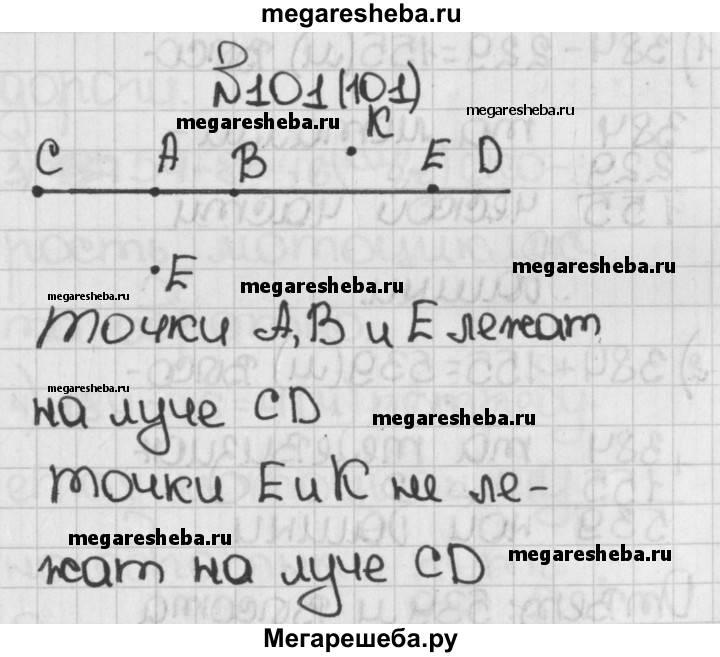 megaresheba.ru
№101(101)
megaresheba.ru
megaresheba.ru
K
C A B E D
E
megaresheba.ru
megaresheba.ru
megaresheba.ru
точки A, B и E лежат
megaresheba.ru
на луче CD
megaresheba.ru
точки E и K не ле-
megaresheba.ru
жат на луче CD
megaresheba.ru
Мегарешеба.ру